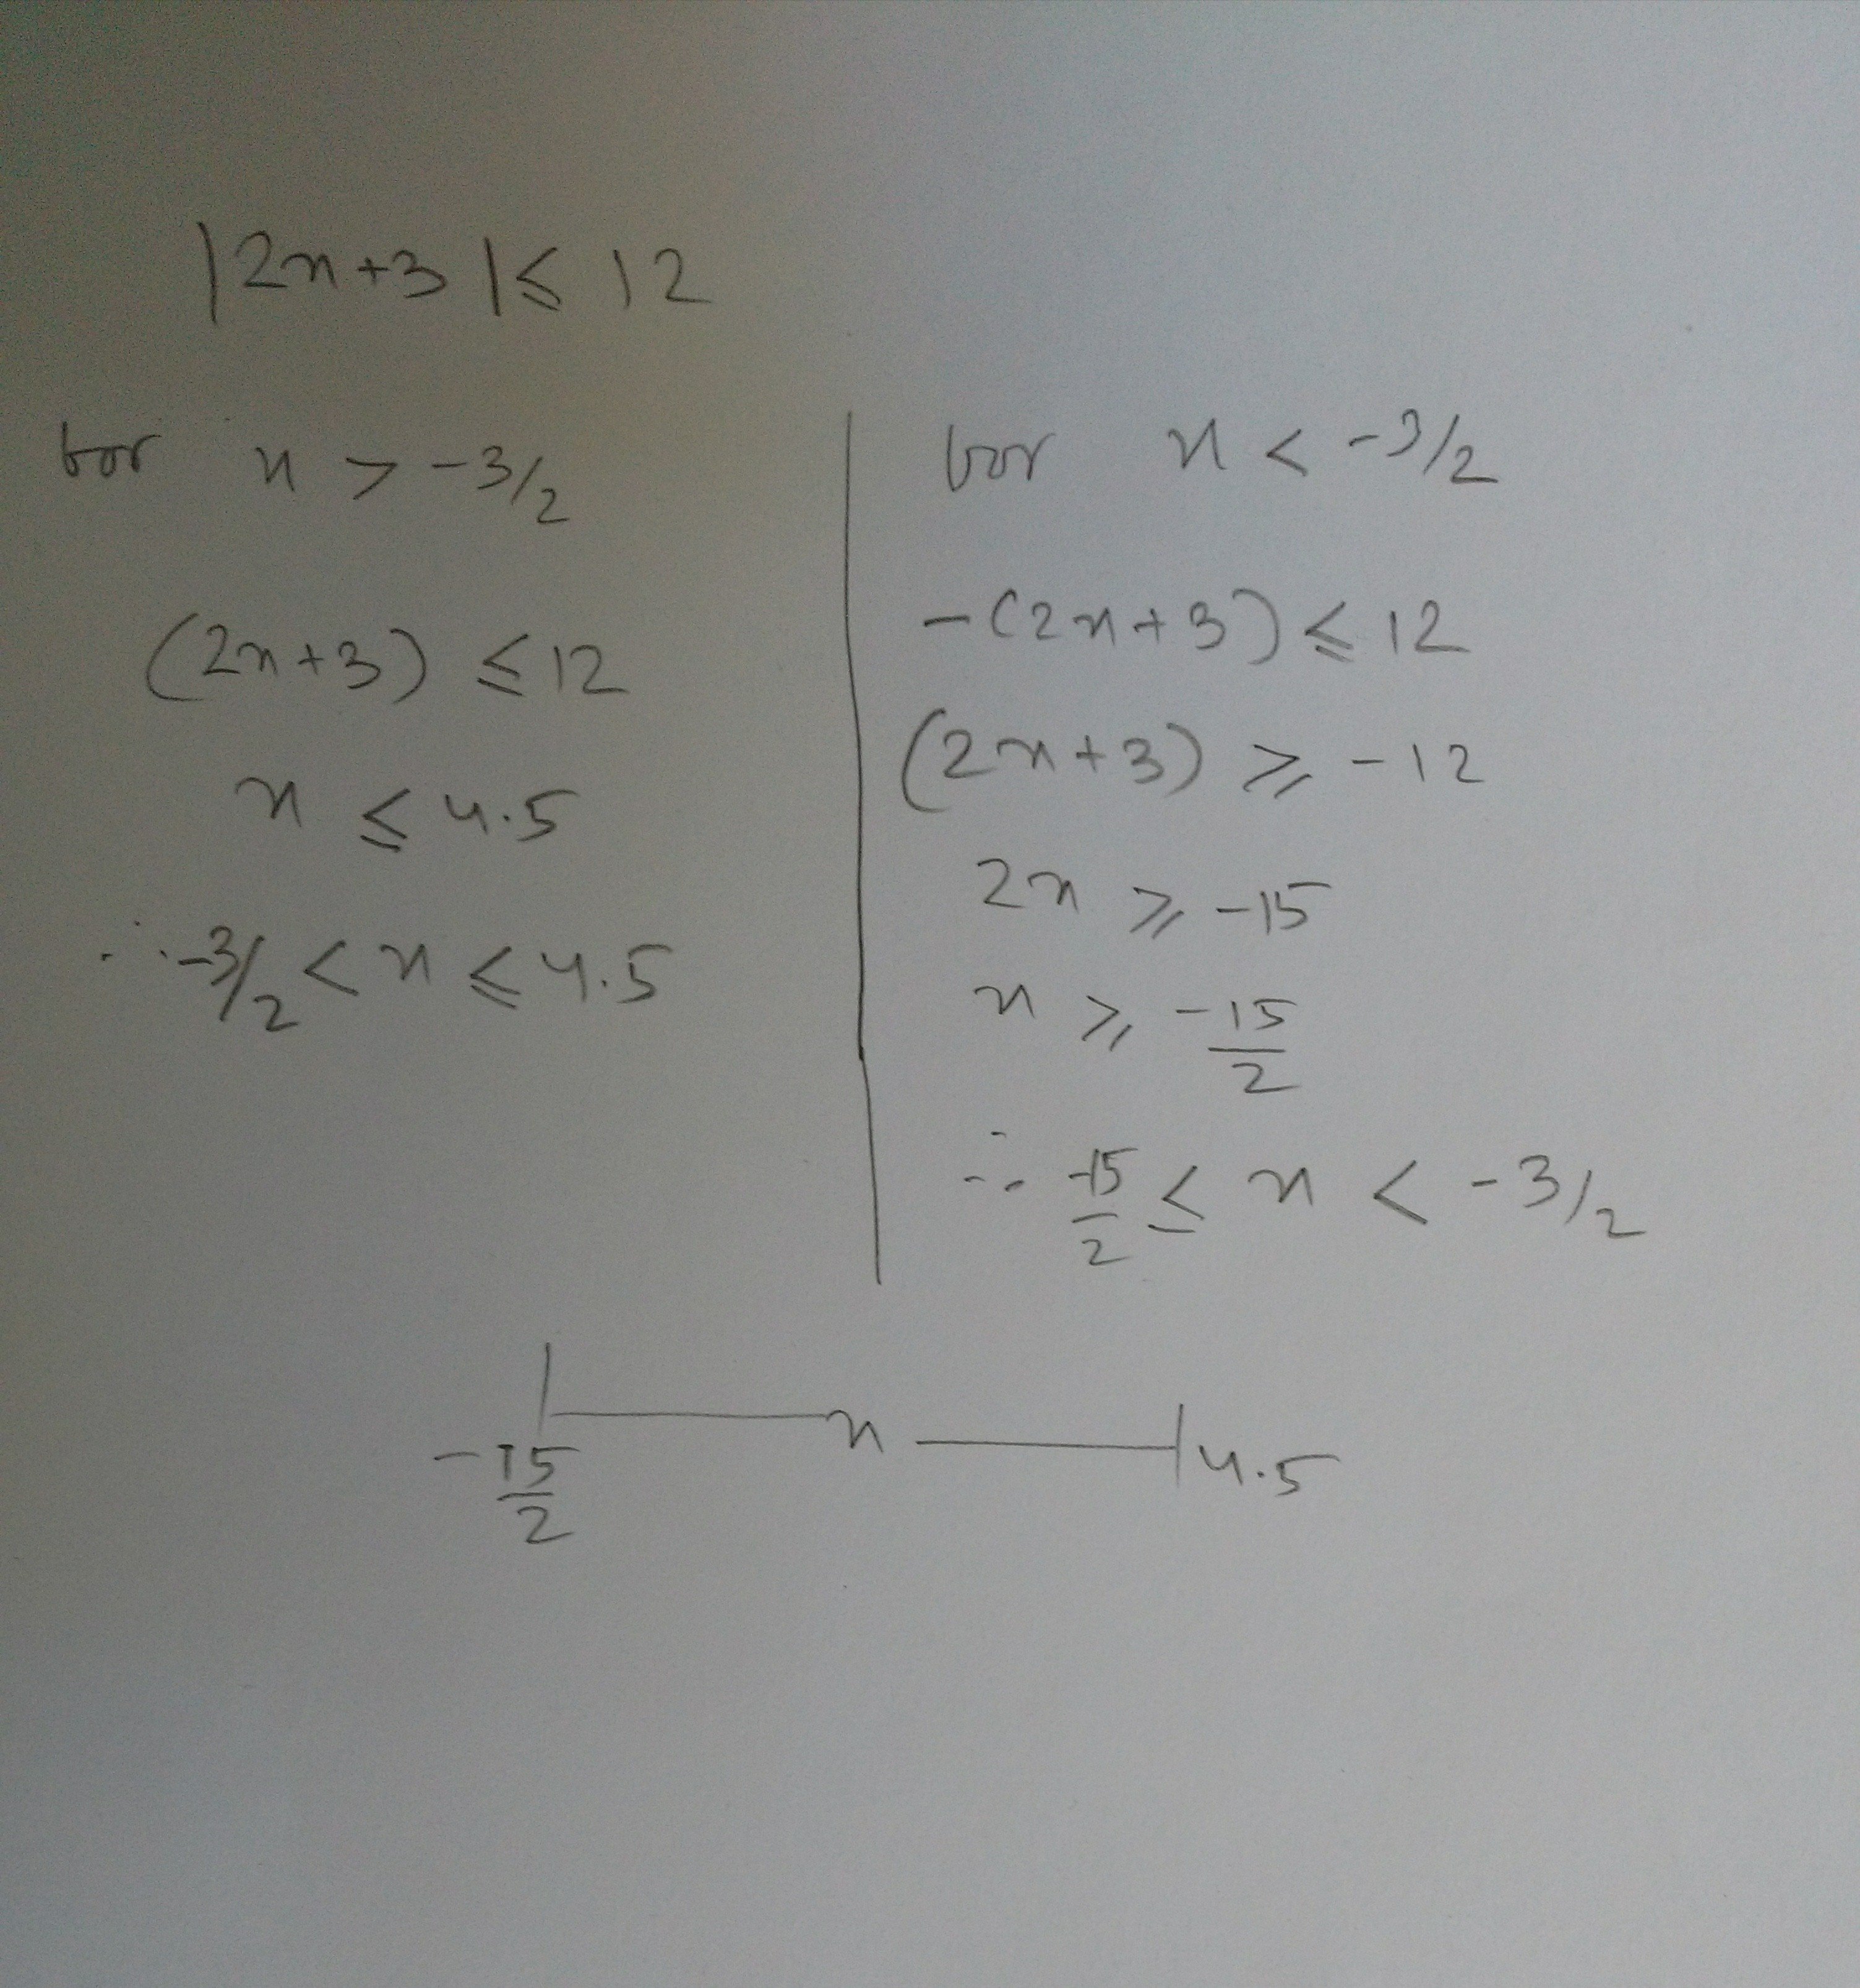 |2x+3|≤ 12
for x > -3/2
(2x+3) ≤ 12
x ≤ 4.5
∴ -3/2 < x ≤ 4.5
for x < -3/2
-(2x+3) ≤ 12
(2x+3) ≥ -12
2x ≥ -15
x ≥ -15/2
∴ -15/2 ≤ x < -3/2
-15/2 x 4.5